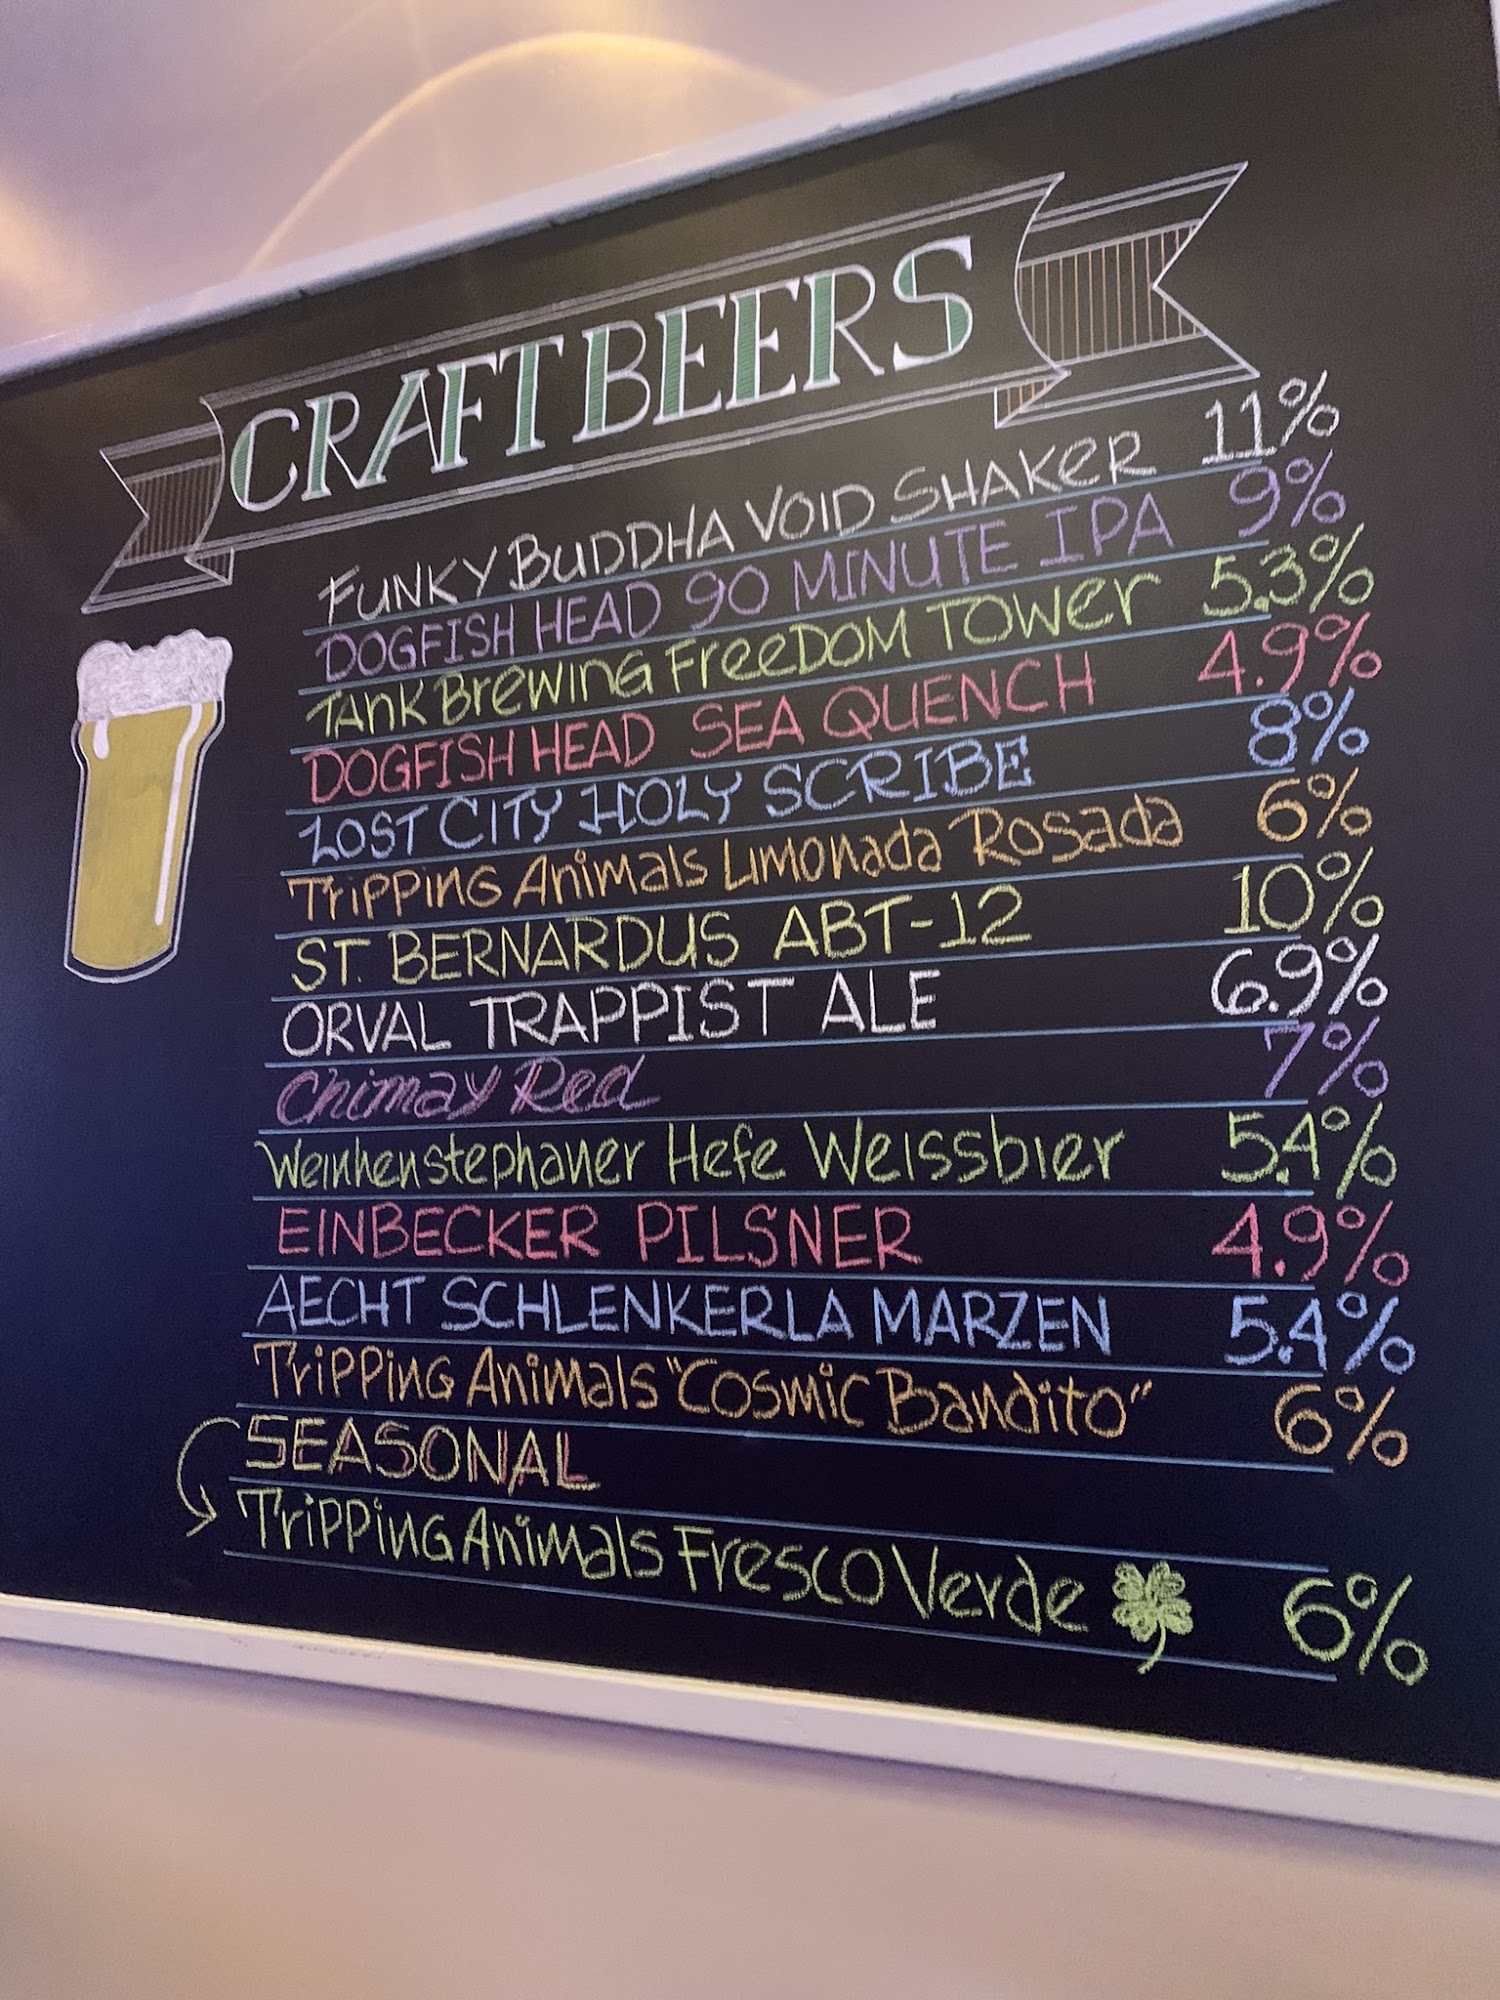 CRAFT BEERS
FUNKY BUDDHA VOID SHAKER 11%
DOGFISH HEAD 90 MINUTE IPA 9%
TANK BREWING FREEDOM TOWER 5.3%
DOGFISH HEAD SEA QUENCH 4.9%
LOST CITY HOLY SCRIBE 8%
Tripping Animals Limonada Rosada 6%
ST. BERNARDUS ABT-12 10%
ORVAL TRAPPIST ALE 6.9%
Chimay Red 7%
Weinhenstephaner Hefe Weissbier 5.4%
EINBECKER PILSNER 4.9%
AECHT SCHLENKERLA MARZEN 5.4%
Tripping Animals "Cosmic Bandito" 6%
SEASONAL
Tripping Animals Fresco Verde 6%